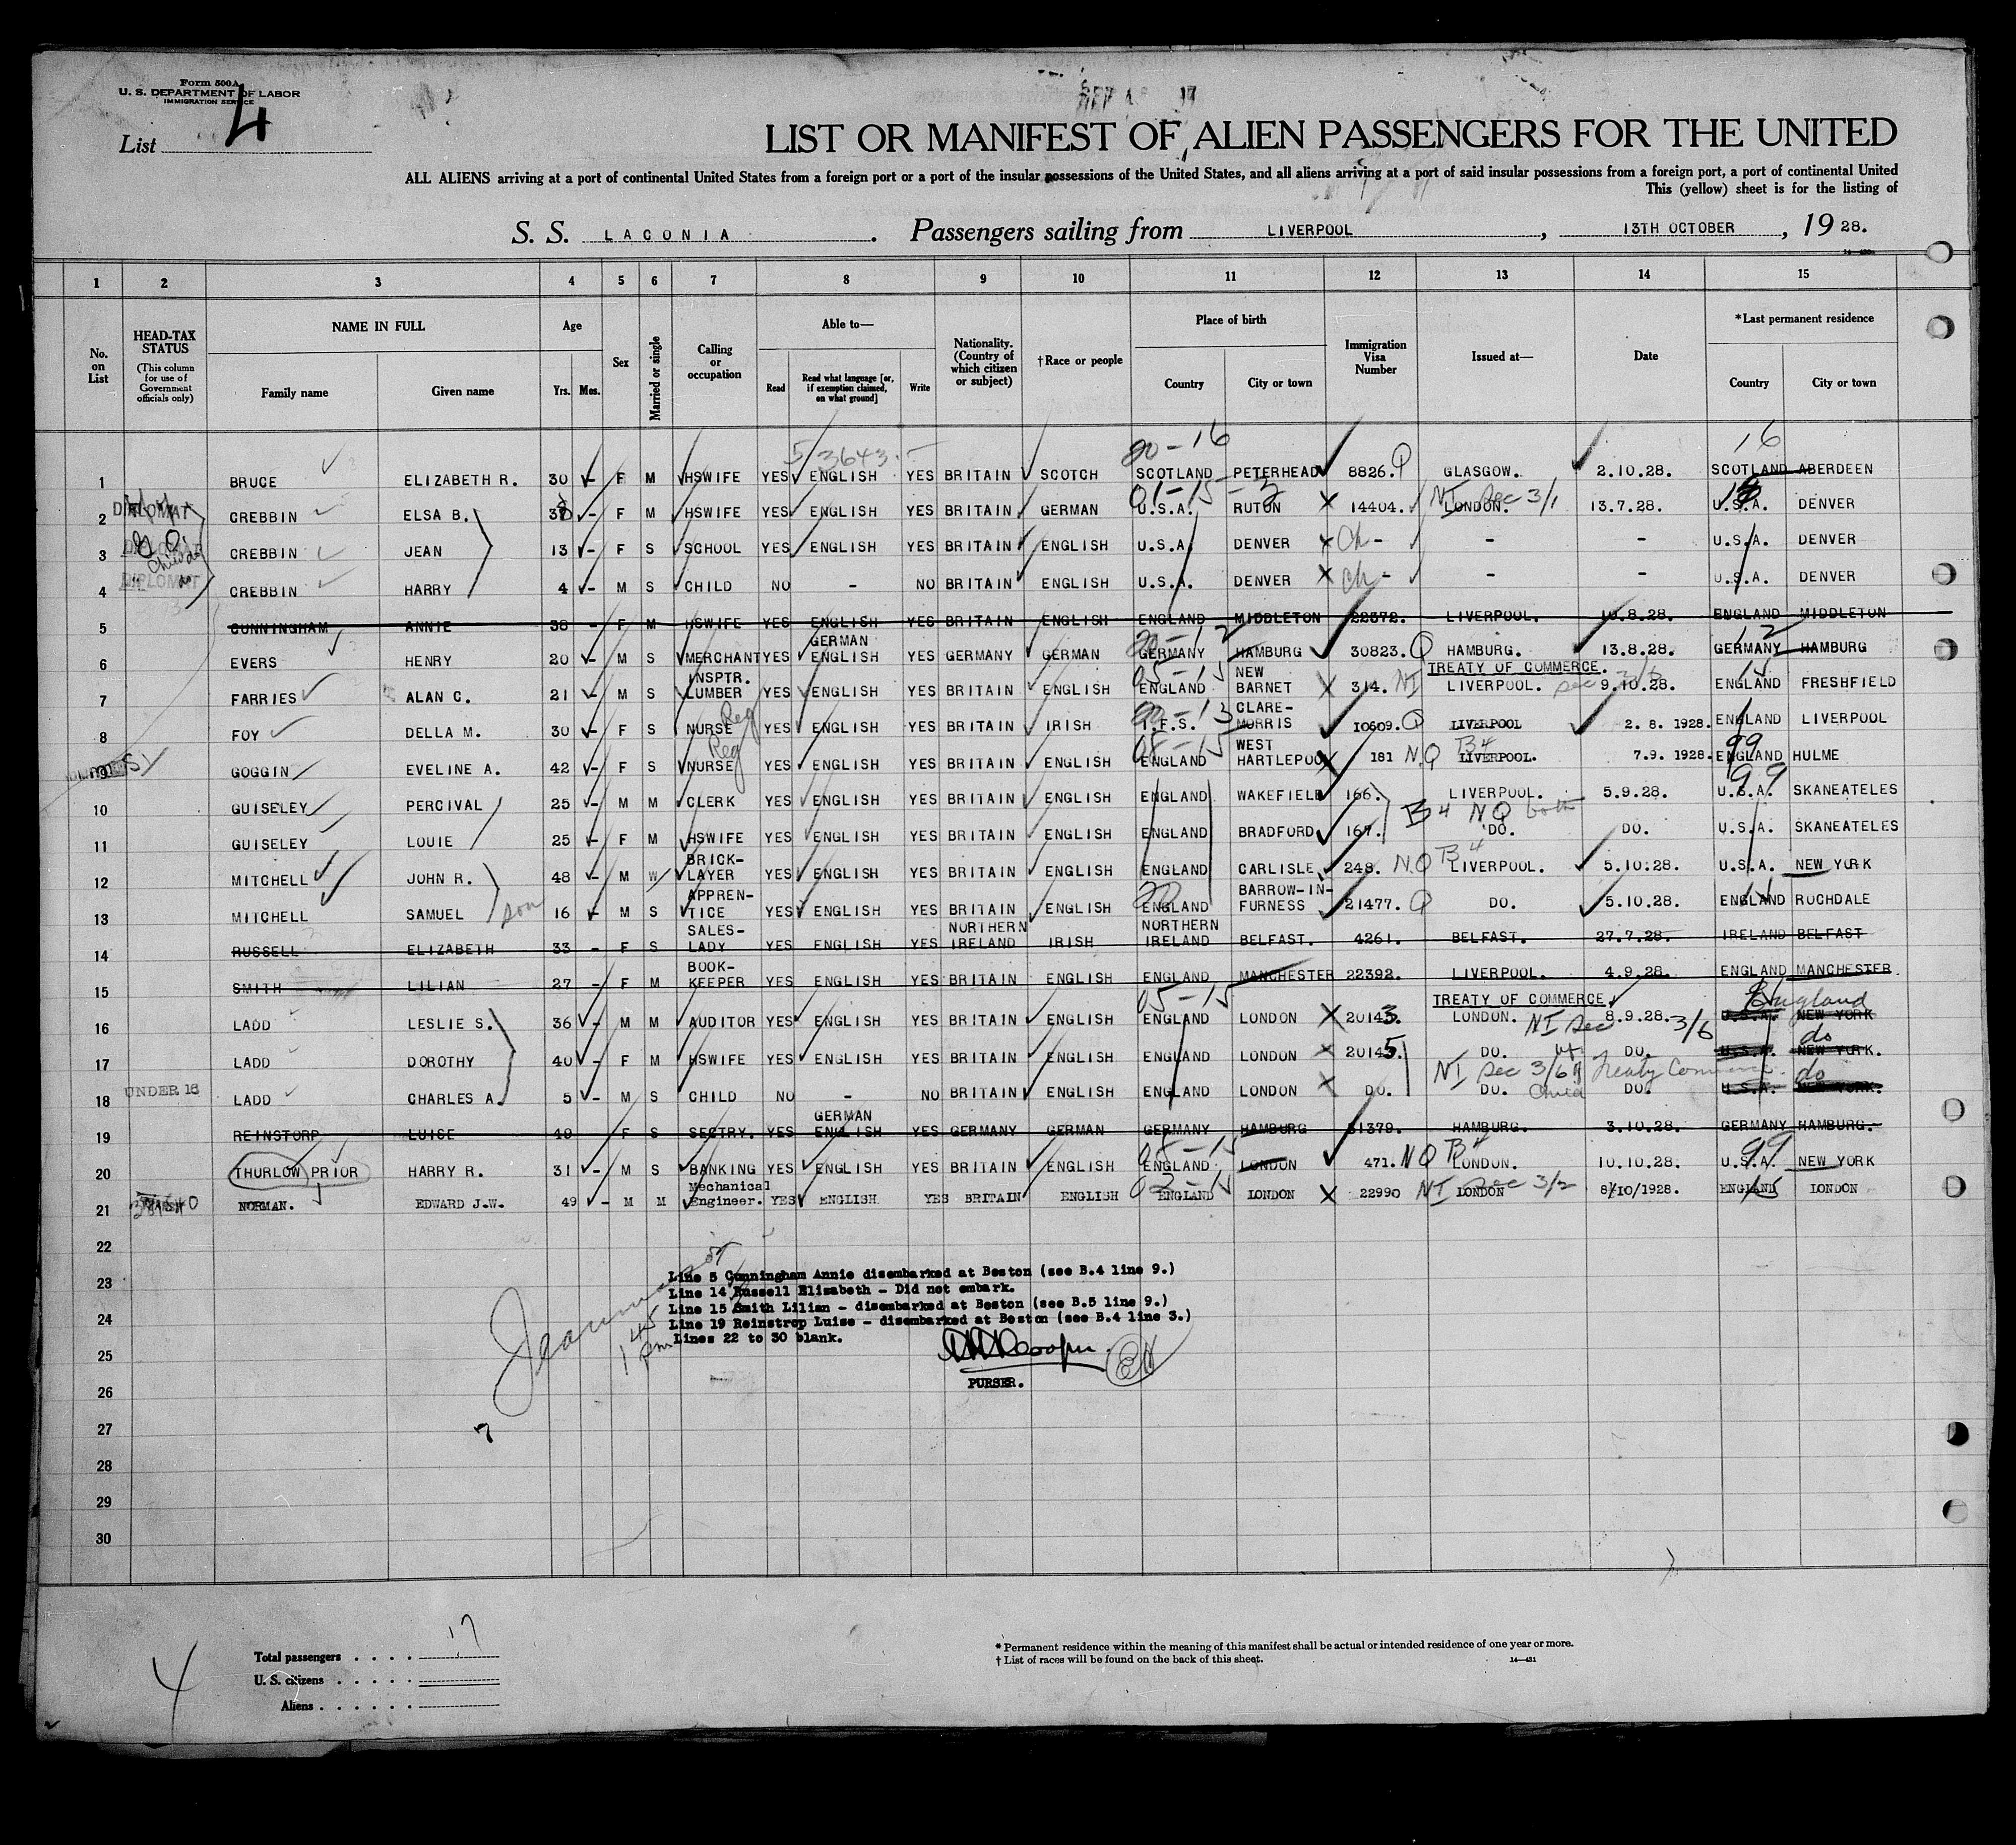 Form 500A
U. S. DEPARTMENT OF LABOR
IMMIGRATION SERVICE
List 4
LIST OR MANIFEST OF ALIEN PASSENGERS FOR THE UNITED
ALL ALIENS arriving at a port of continental United States from a foreign port or a port of the insular possessions of the United States, and all aliens arriving at a port of said insular possessions from a foreign port, a port of continental United
This (yellow) sheet is for the listing of
S. S. LACONIA. Passengers sailing from LIVERPOOL, 13TH OCTOBER, 19 28.
1 2 3 4 5 6 7 8 9 10 11 12 13 14 15
No. on List HEAD-TAX STATUS (This column for use of Government officials only) NAME IN FULL Family name Given name Age Yrs. Mos. Sex Married or single Calling or occupation Able to— Read Read what language [or, if exemption claimed, on what ground] Write Nationality. (Country of which citizen or subject) †Race or people Place of birth Country City or town Immigration Visa Number Issued at— Date *Last permanent residence Country City or town
53643 20-16 16
1 BRUCE ELIZABETH R. 30 - F M HSWIFE YES ENGLISH YES BRITAIN SCOTCH SCOTLAND PETERHEAD 8826. Q GLASGOW. 2.10.28. SCOTLAND ABERDEEN
01-15-2 NI Sec 3/1
2 DIPLOMAT CREBBIN ELSA B. 38 - F M HSWIFE YES ENGLISH YES BRITAIN GERMAN U.S.A. RUTON 14404. LONDON. 13.7.28. U.S.A. DENVER
3 CREBBIN JEAN 13 - F S SCHOOL YES ENGLISH YES BRITAIN ENGLISH U.S.A. DENVER Ch - - - U.S.A. DENVER
4 DIPLOMAT CREBBIN HARRY 4 - M S CHILD NO - NO BRITAIN ENGLISH U.S.A. DENVER Ch - - - U.S.A. DENVER
5 CUNNINGHAM ANNIE 38 - F M HSWIFE YES ENGLISH YES BRITAIN ENGLISH ENGLAND MIDDLETON 22372. LIVERPOOL. 10.8.28. ENGLAND MIDDLETON
6 EVERS HENRY 20 - M S MERCHANT YES GERMAN ENGLISH YES GERMANY GERMAN GERMANY HAMBURG 30823. Q HAMBURG. 13.8.28. GERMANY HAMBURG
05-15 TREATY OF COMMERCE. 15
7 FARRIES ALAN C. 21 - M S INSPTR. LUMBER YES ENGLISH YES BRITAIN ENGLISH ENGLAND NEW BARNET 314. NI LIVERPOOL. Sec 3/6 9.10.28. ENGLAND FRESHFIELD
8 FOY DELLA M. 30 - F S NURSE Reg YES ENGLISH YES BRITAIN IRISH I.F.S. CLARE-MORRIS 10609. Q LIVERPOOL 2. 8. 1928. ENGLAND LIVERPOOL
9 SI GOGGIN EVELINE A. 42 - F S NURSE Reg YES ENGLISH YES BRITAIN ENGLISH ENGLAND WEST HARTLEPOO 181 N.Q B4 LIVERPOOL. 7.9. 1928. ENGLAND HULME
99
10 GUISELEY PERCIVAL 25 - M M CLERK YES ENGLISH YES BRITAIN ENGLISH ENGLAND WAKEFIELD 166. LIVERPOOL. 5.9.28. U.S.A. SKANEATELES
B4 NQ both
11 GUISELEY LOUIE 25 - F M HSWIFE YES ENGLISH YES BRITAIN ENGLISH ENGLAND BRADFORD 167. DO. DO. U.S.A. SKANEATELES
12 MITCHELL JOHN R. 48 - M W BRICK-LAYER YES ENGLISH YES BRITAIN ENGLISH ENGLAND CARLISLE 248. N.Q B4 LIVERPOOL. 5.10.28. U.S.A. NEW YORK
13 MITCHELL SAMUEL son 16 - M S APPREN-TICE YES ENGLISH YES BRITAIN ENGLISH ENGLAND BARROW-IN-FURNESS 21477. Q DO. 5.10.28. ENGLAND ROCHDALE
14 RUSSELL ELIZABETH 33 - F S SALES-LADY YES ENGLISH YES NORTHERN IRELAND IRISH NORTHERN IRELAND BELFAST. 4261. BELFAST. 27.7.28. IRELAND BELFAST
15 SMITH LILIAN 27 - F M BOOK-KEEPER YES ENGLISH YES BRITAIN ENGLISH ENGLAND MANCHESTER 22392. LIVERPOOL. 4.9.28. ENGLAND MANCHESTER.
05-15 TREATY OF COMMERCE. England
16 LADD LESLIE S. 36 - M M AUDITOR YES ENGLISH YES BRITAIN ENGLISH ENGLAND LONDON 20143. LONDON. NI Sec 3/6 8.9.28. U.S.A. NEW YORK
do
17 LADD DOROTHY 40 - F M HSWIFE YES ENGLISH YES BRITAIN ENGLISH ENGLAND LONDON 20145. DO. DO. U.S.A. NEW YORK.
NI Sec 3/6 Treaty Commerce do
18 UNDER 16 LADD CHARLES A. 5 - M S CHILD NO - NO BRITAIN ENGLISH ENGLAND LONDON DO. DO. Child DO. U.S.A. NEW YORK.
19 REINSTORP LUISE 49 - F S SECTRY. YES GERMAN ENGLISH YES GERMANY GERMAN GERMANY HAMBURG 31379. HAMBURG. 3.10.28. GERMANY HAMBURG.
08-15 99
20 THURLOW PRIOR HARRY R. 31 - M S BANKING YES ENGLISH YES BRITAIN ENGLISH ENGLAND LONDON 471. NQ B4 LONDON. 10.10.28. U.S.A. NEW YORK
21 NORMAN. EDWARD J.W. 49 - M M Mechanical Engineer. YES ENGLISH YES BRITAIN ENGLISH ENGLAND LONDON 22990 NI Sec 3/2 LONDON 8/10/1928. ENGLAND LONDON
22
23
24
25
26
27
28
29
30
Line 5 Cunningham Annie disembarked at Boston (see B.4 line 9.)
Line 14 Russell Elizabeth - Did not embark.
Line 15 Smith Lilian - disembarked at Boston (see B.5 line 9.)
Line 19 Reinstrop Luise - disembarked at Boston (see B.4 line 3.)
Lines 22 to 30 blank.
PURSER.
7
4
Total passengers . . . . 17
U. S. citizens . . . . .
Aliens . . . . . .
* Permanent residence within the meaning of this manifest shall be actual or intended residence of one year or more.
† List of races will be found on the back of this sheet.
14—431